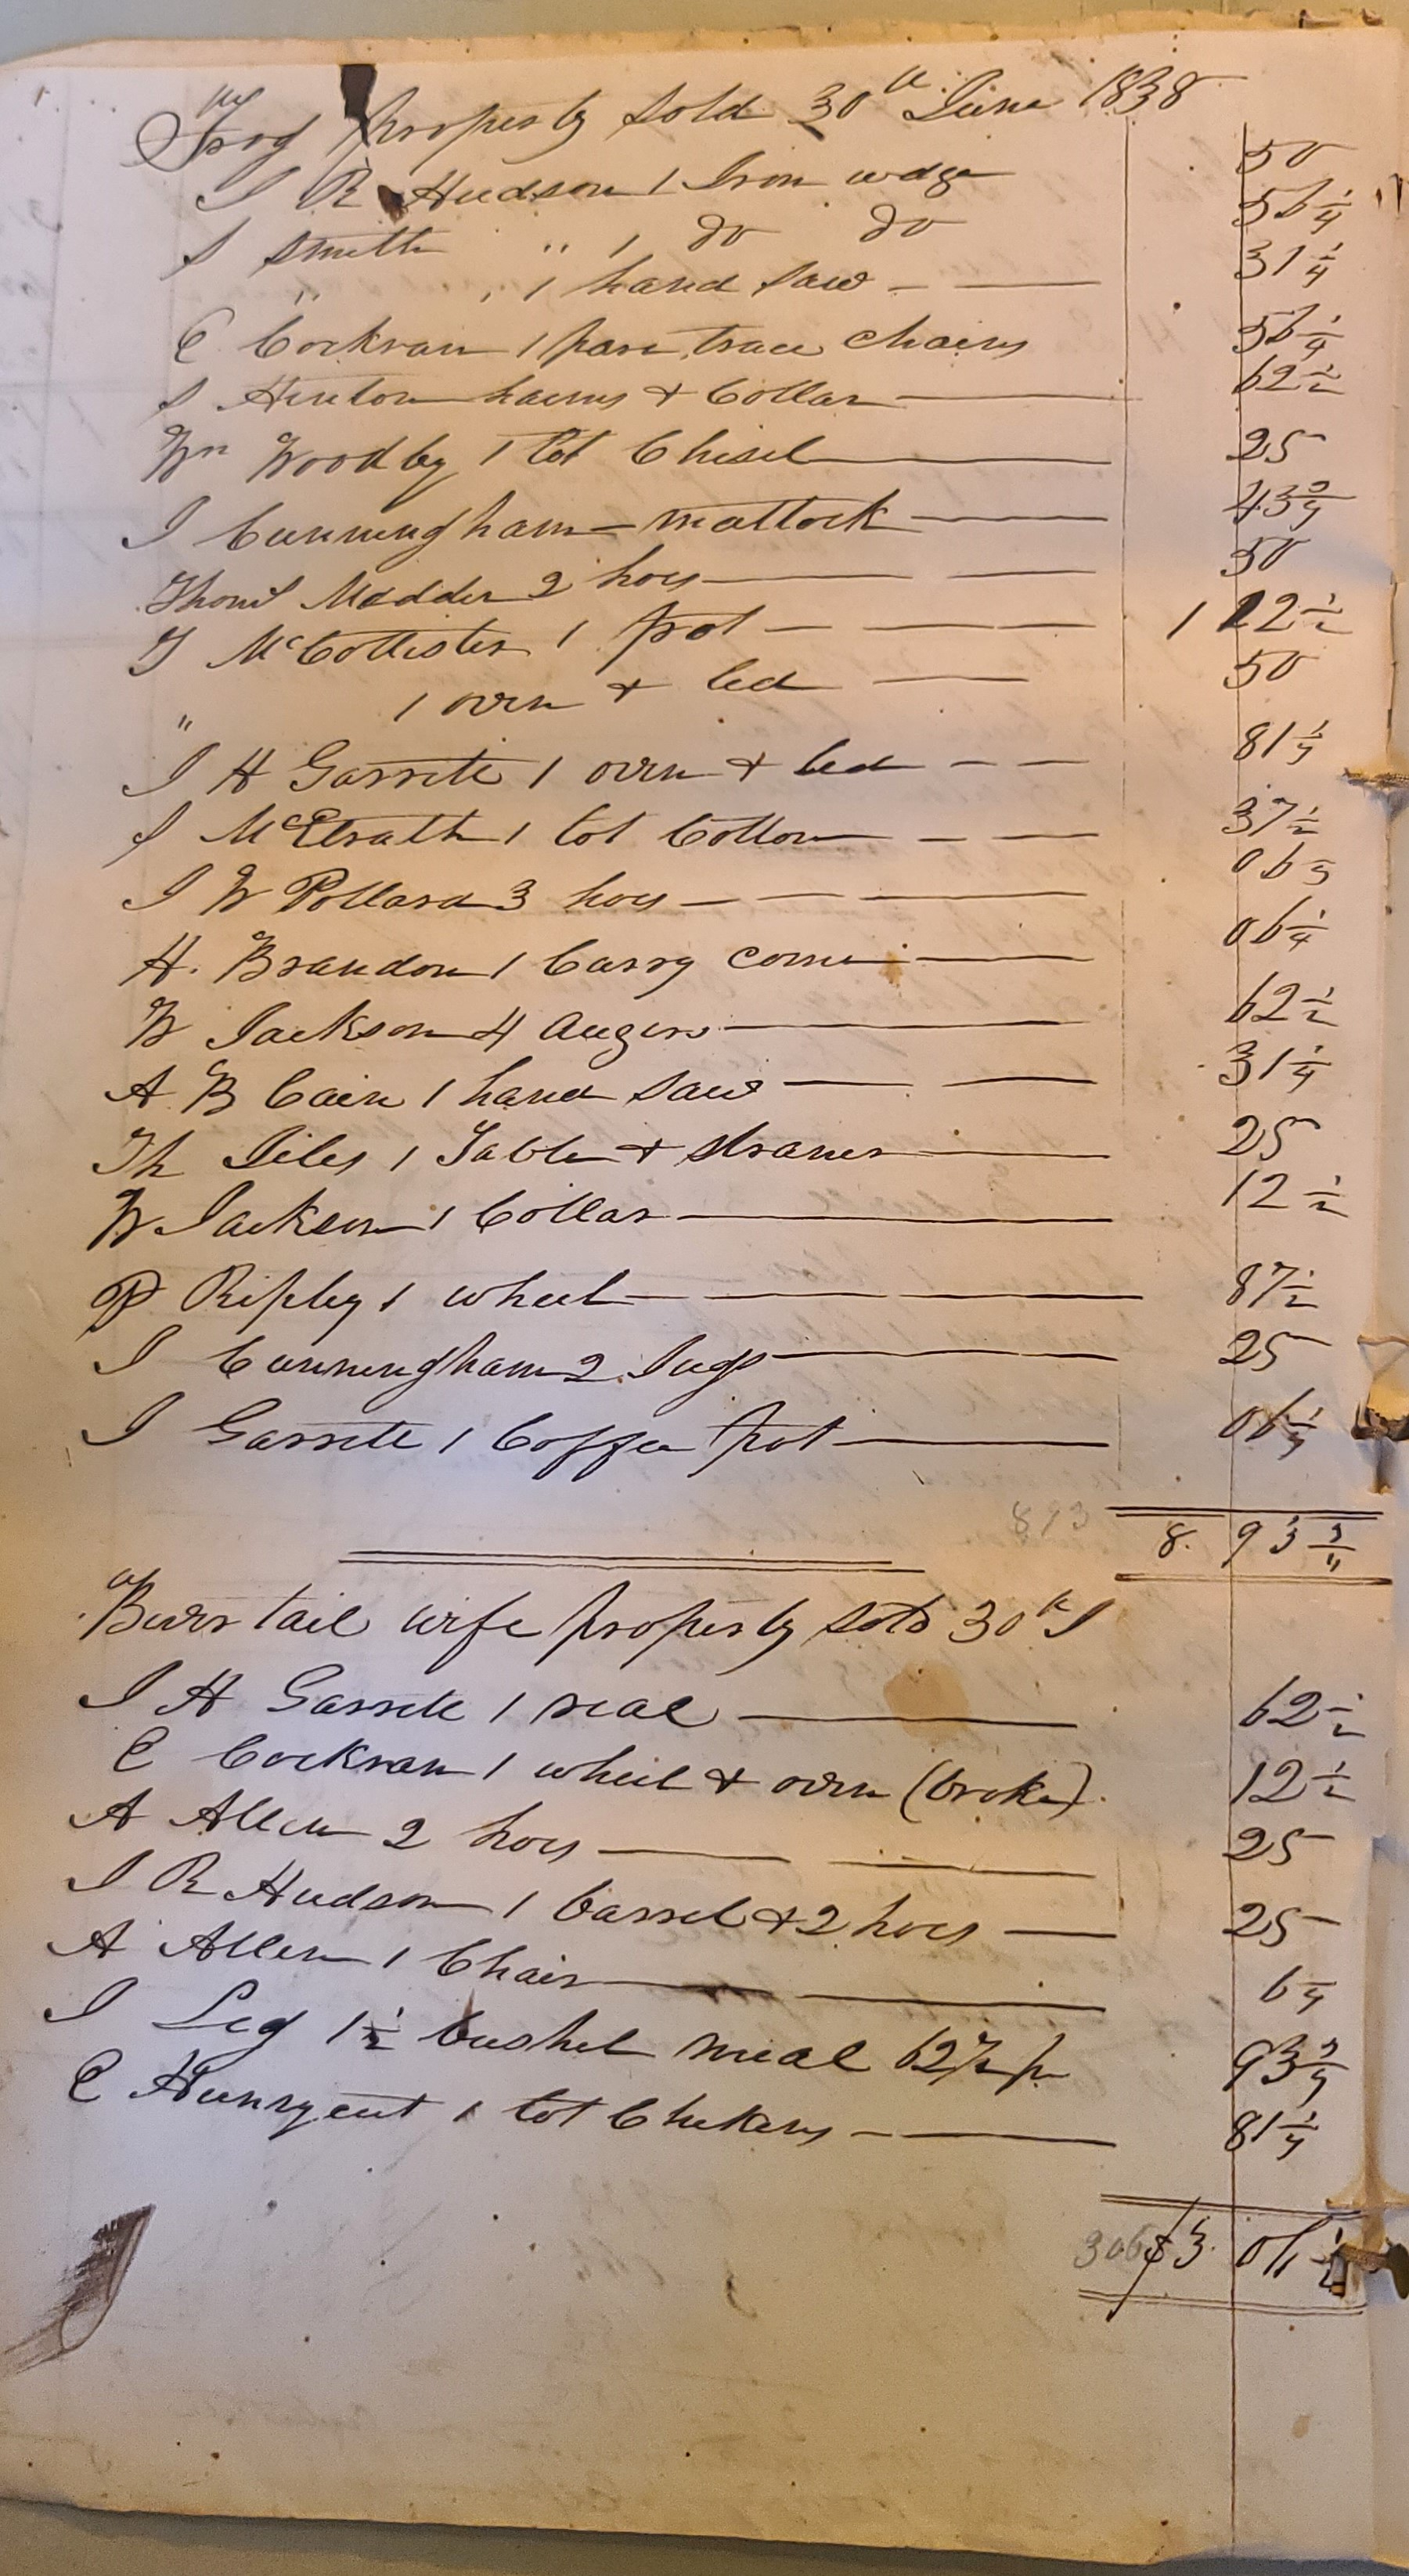 Frog Property Sold 30th June 1838
J R Hudson 1 Iron wdge 50
S Smith " 1 do do 56 1/4
" " 1 hand Saw 31 1/4
C Cockran 1 pare trace chains 56 1/4
S Hinton hames & Collar 62 1/2
Wm Woodby 1 lot Chisel 25
J Cunningham mattock 43 3/4
Thoms Madder 2 hoes 50
J McCollister 1 pot 1 12 1/2
" 1 oven & led 50
J H Garrete 1 oven & led 81 1/4
S McElrath 1 lot Cotton 37 1/2
J W Pollard 3 hoes 06 1/4
H. Brandon 1 Carry come 06 1/4
W Jackson 4 Augers 62 1/2
A B Cain 1 hand Saw 31 1/4
Th Liles 1 Table & drawer 25
W Jackson 1 Collar 12 1/2
P Ripley 1 wheel 87 1/2
J Cunningham 2 Jugs 25
J Garrete 1 Coffee pot 06 1/4
893 8. 93 3/4
Bears tail wife property sold 30th J
J H Garrete 1 real 62 1/2
C Cockran 1 wheel & oven (broke) 12 1/2
A Allen 2 hoes 25
J R Hudson 1 barrel & 2 hoes 25
A Allen 1 Chair 6 1/4
J Leg 1 1/2 bushel meal 62 1/2 pr 93 3/4
C Hunnycut 1 lot Chekens 81 1/4
306 $3. 06 1/4